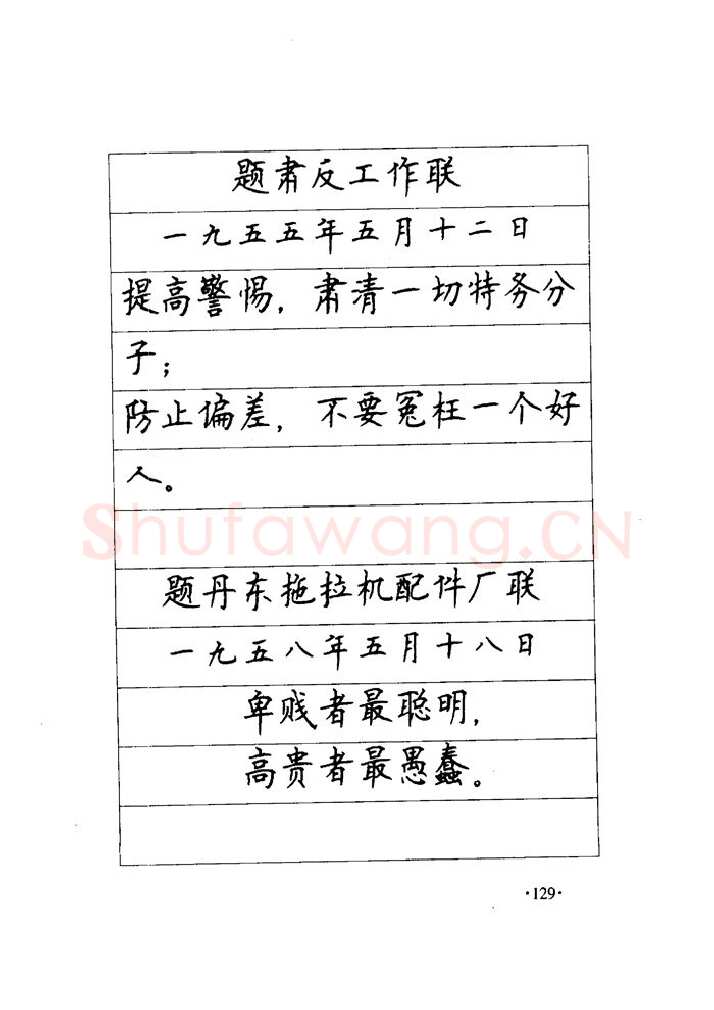 题肃反工作联
一九五五年五月十二日
提高警惕，肃清一切特务分
子；
防止偏差，不要冤枉一个好
人。
Shufawang.CN
题丹东拖拉机配件厂联
一九五八年五月十八日
卑贱者最聪明，
高贵者最愚蠢。
·129·